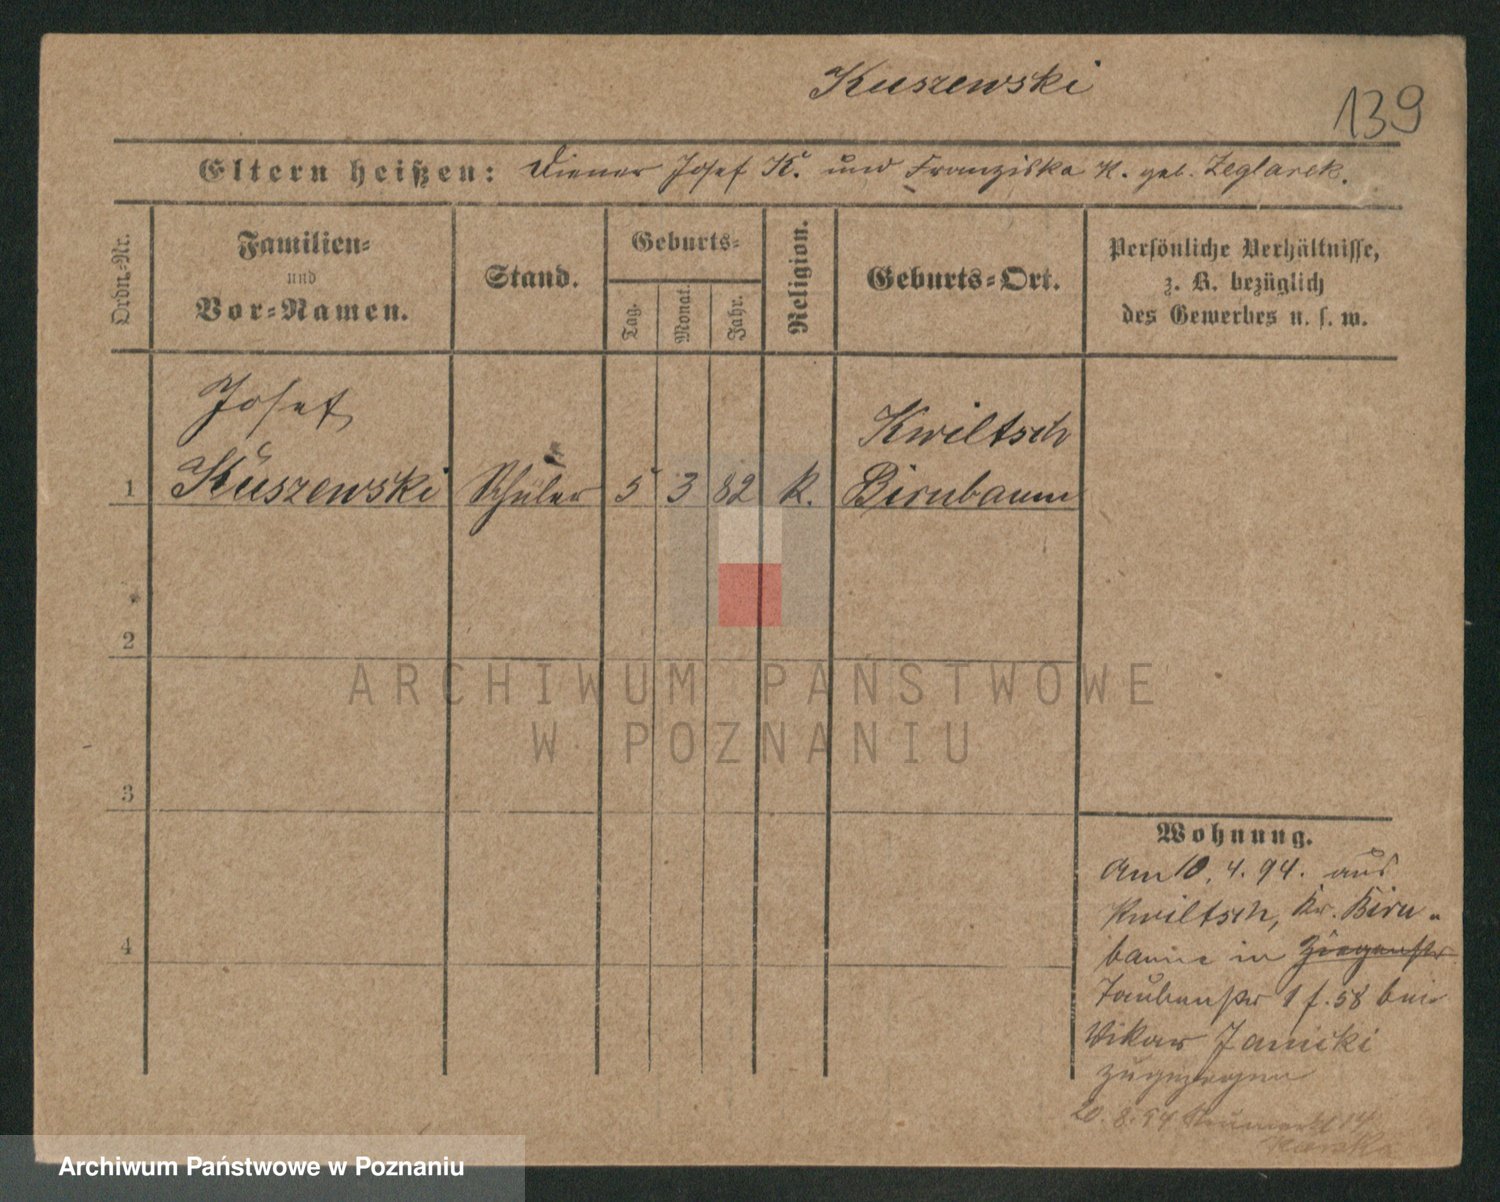 Kuszewski
139
Eltern heißen: Diener Josef K. und Franziska K. geb. Zeglarek.
Ordn.-Nr.
Familien-
und
Vor-Namen.
Stand.
Geburts-
Tag.
Monat.
Jahr.
Religion.
Geburts-Ort.
Persönliche Verhältnisse,
z. B. bezüglich
des Gewerbes u. s. w.
Josef
Kwiltsch
1 Kuszewski Schüler 5 3 82 k. Birnbaum
2
3
4
Wohnung.
Am 10. 4. 94. aus
Kwiltsch, Kr. Birn-
baum in Ziegenstr
Taubenstr 1 f. 58 bei
Vikar Janicki
zugezogen
20. 8. 94 Neumarkt 14
ARCHIWUM PAŃSTWOWE
W POZNANIU
Archiwum Państwowe w Poznaniu